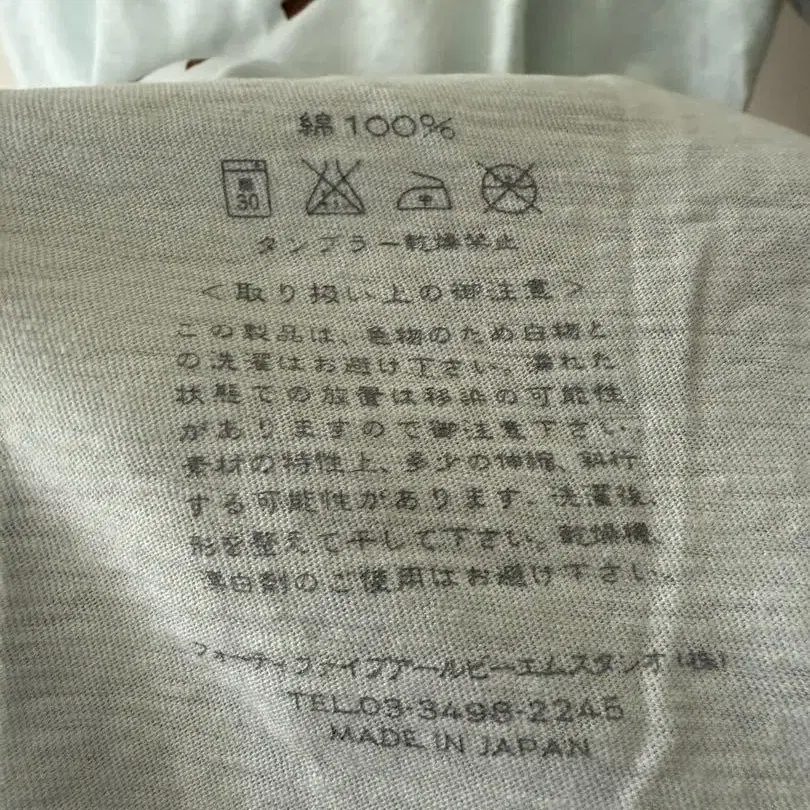 綿100%
弱
30
中
タンブラー乾燥禁止
<取り扱い上の御注意>
この製品は、色物のため白物と
の洗濯はお避け下さい。濡れた
状態での放置は移染の可能性
がありますので御注意下さい。
素材の特性上、多少の伸縮、斜行
する可能性があります。洗濯後、
形を整えて干して下さい。乾燥機、
漂白剤のご使用はお避け下さい。
フォーティファイブアールピーエムスタジオ(株)
TEL.03-3498-2245
MADE IN JAPAN